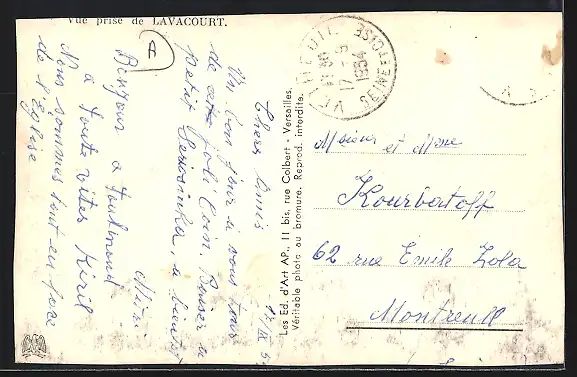 Vue prise de LAVACOURT.
A
17/IX 5
Chers Amis
Un bon jour a vous tous
de joli Coin. Baiser a
petit Seriosinka, a bientôt
Mimi
Bonjour a toutmond
a toute vites Kiril
Nous sommes tout en face
de l'Eglise
Les Ed. d'Art AP., 11 bis, rue Colbert - Versailles.
Véritable photo au bromure. Reprod. interdite.
VETHEUIL
17 - 9
1954
SEINE ET OISE
Mosieur et Mme
Kourbatoff
62 rue Emile Zola
Montreuil